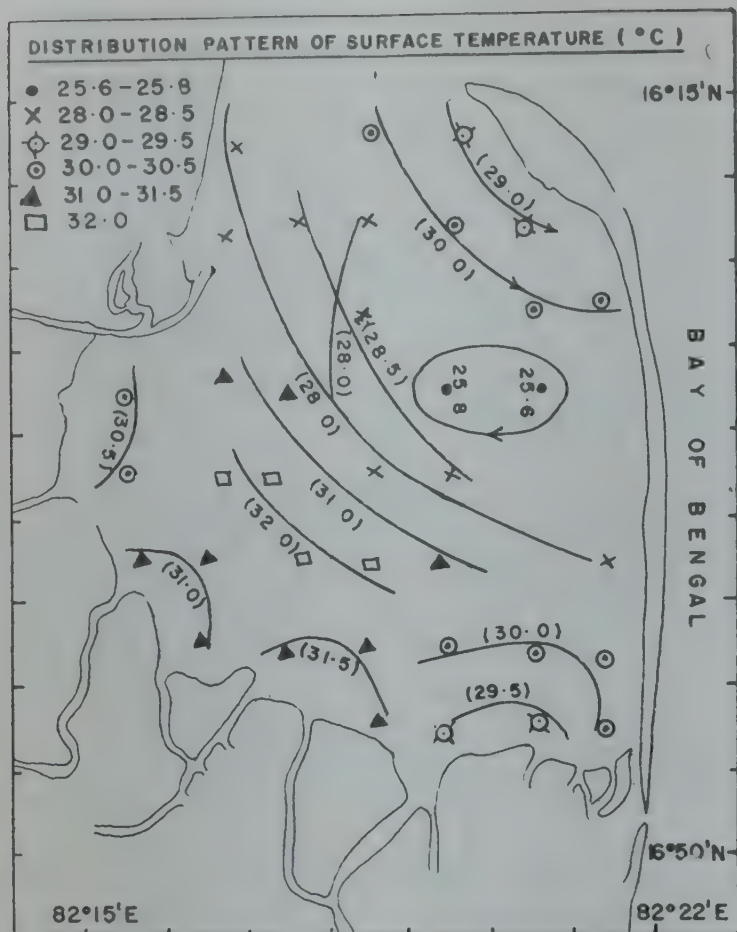 DISTRIBUTION PATTERN OF SURFACE TEMPERATURE (°C)
25.6-25.8
28.0-28.5
29.0-29.5
30.0-30.5
31 0-31.5
32.0
16°15'N
(29.0)
(30 0)
(28.5)
(28.0)
25.8
25.6
(28 0)
(30.5)
(31 0)
(32 0)
(31.0)
(31.5)
(30.0)
(29.5)
BAY OF BENGAL
16°50'N
82°15'E
82°22'E